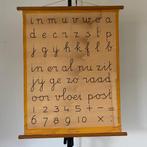 i n m u v w o a
d e c r z s t p
j y h g k f l b
in er al nu zit
jij ge zo raad
oor vloer post
1 2 3 4 5 + - =
6 7 8 9 10 × :